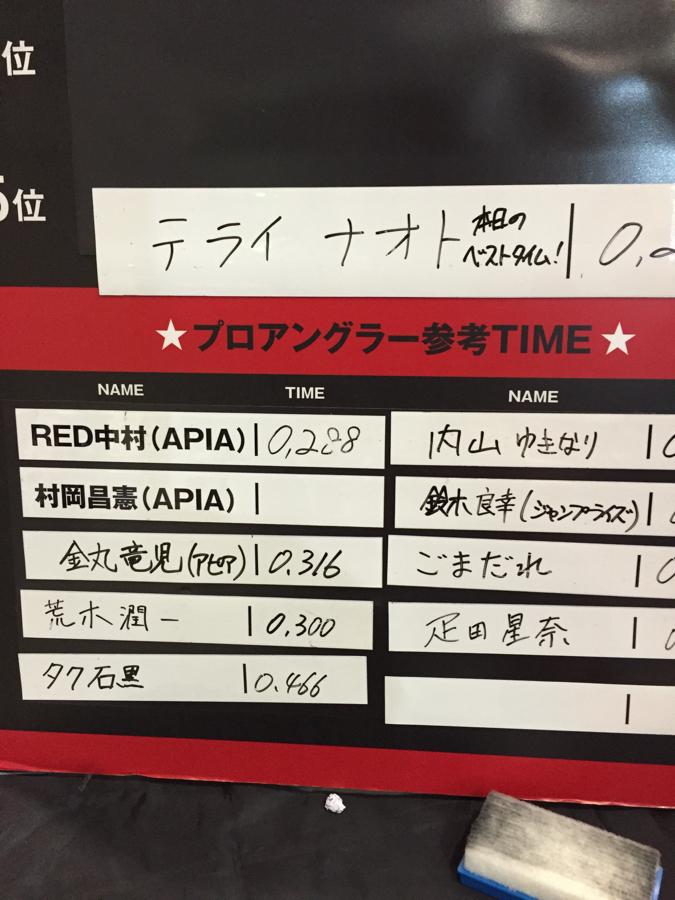 位
5位
テライ ナオト 本日のベストタイム! | 0,
★プロアングラー参考TIME★
NAME TIME NAME
RED中村(APIA) | 0,288
内山 ゆきなり |
村岡昌憲(APIA) |
鈴木良幸(ジャンプライズ) |
金丸竜児(アピア) | 0.316
ごまだれ |
荒木潤一 | 0,300
疋田星奈 |
タク石黒 | 0.466
|